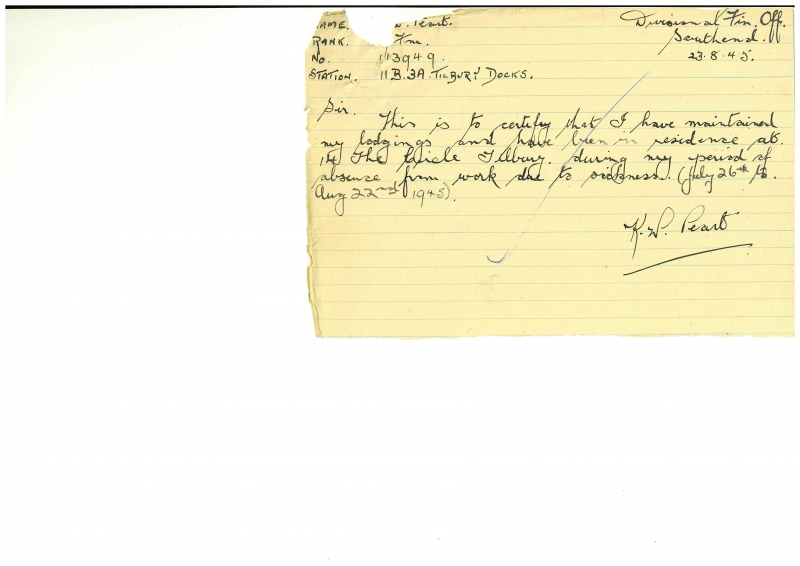 NAME. W. Peart. Divisional Fin. Off.
RANK. Fm. Southend.
No. 113949. 23.8.45.
STATION. 11B.3A. TILBURY DOCKS.
Sir.
This is to certify that I have maintained
my lodgings and have been in residence at
14 The Circle Tilbury. during my period of
absence from work due to sickness. (July 26th to
Aug 22nd 1945).
K.W. Peart